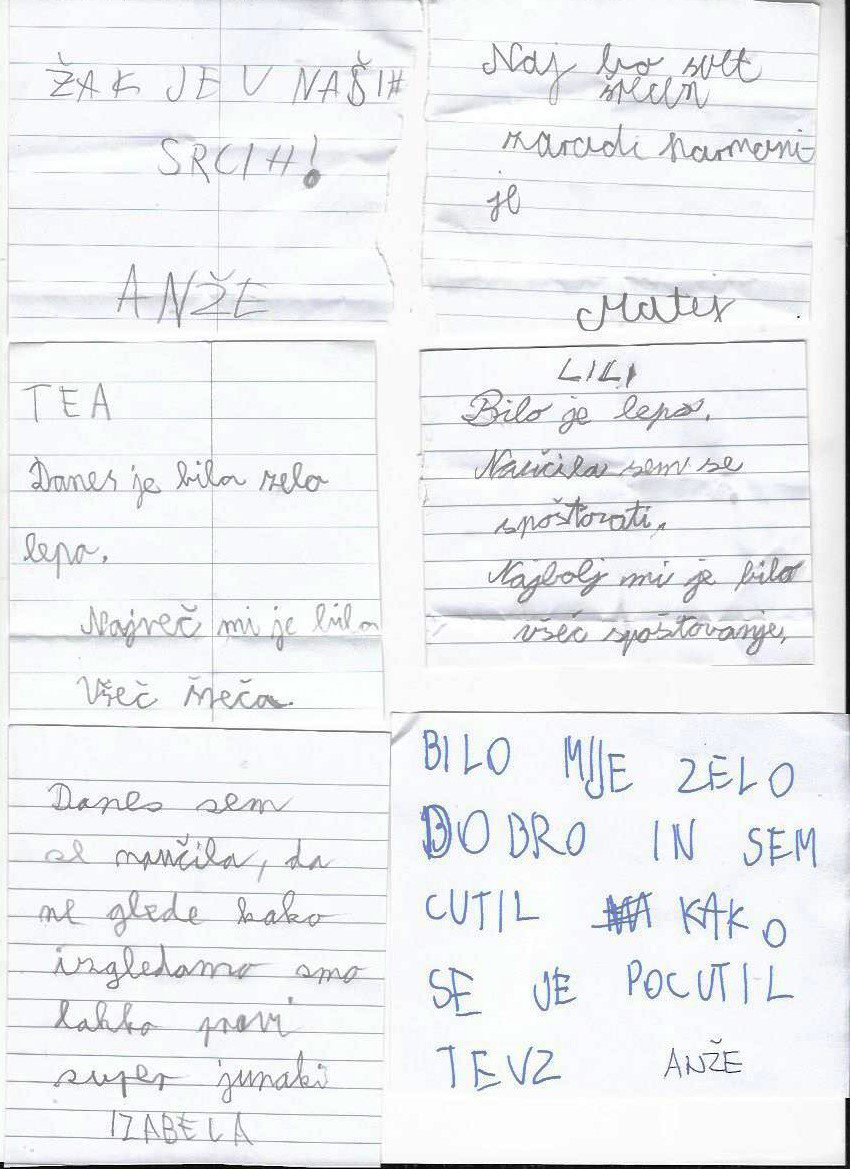 ŽAK JE V NAŠIH
SRCIH!
ANŽE
Naj bo svet
srečen
zaradi harmoni-
je
Matej
TEA
Danes je bilo zelo
lepo.
Največ mi je bila
Všeč
LILI
Bilo je lepo.
Naučila sem se
spoštovati.
Najbolj mi je bilo
všeč spoštovanje.
Danes sem
se naučila, da
ne glede kako
izgledamo smo
lahko pravi
super junaki
IZABELA
BILO MIJE ZELO
DOBRO IN SEM
CUTIL KAKO
SE JE POCUTIL
TEVZ ANŽE